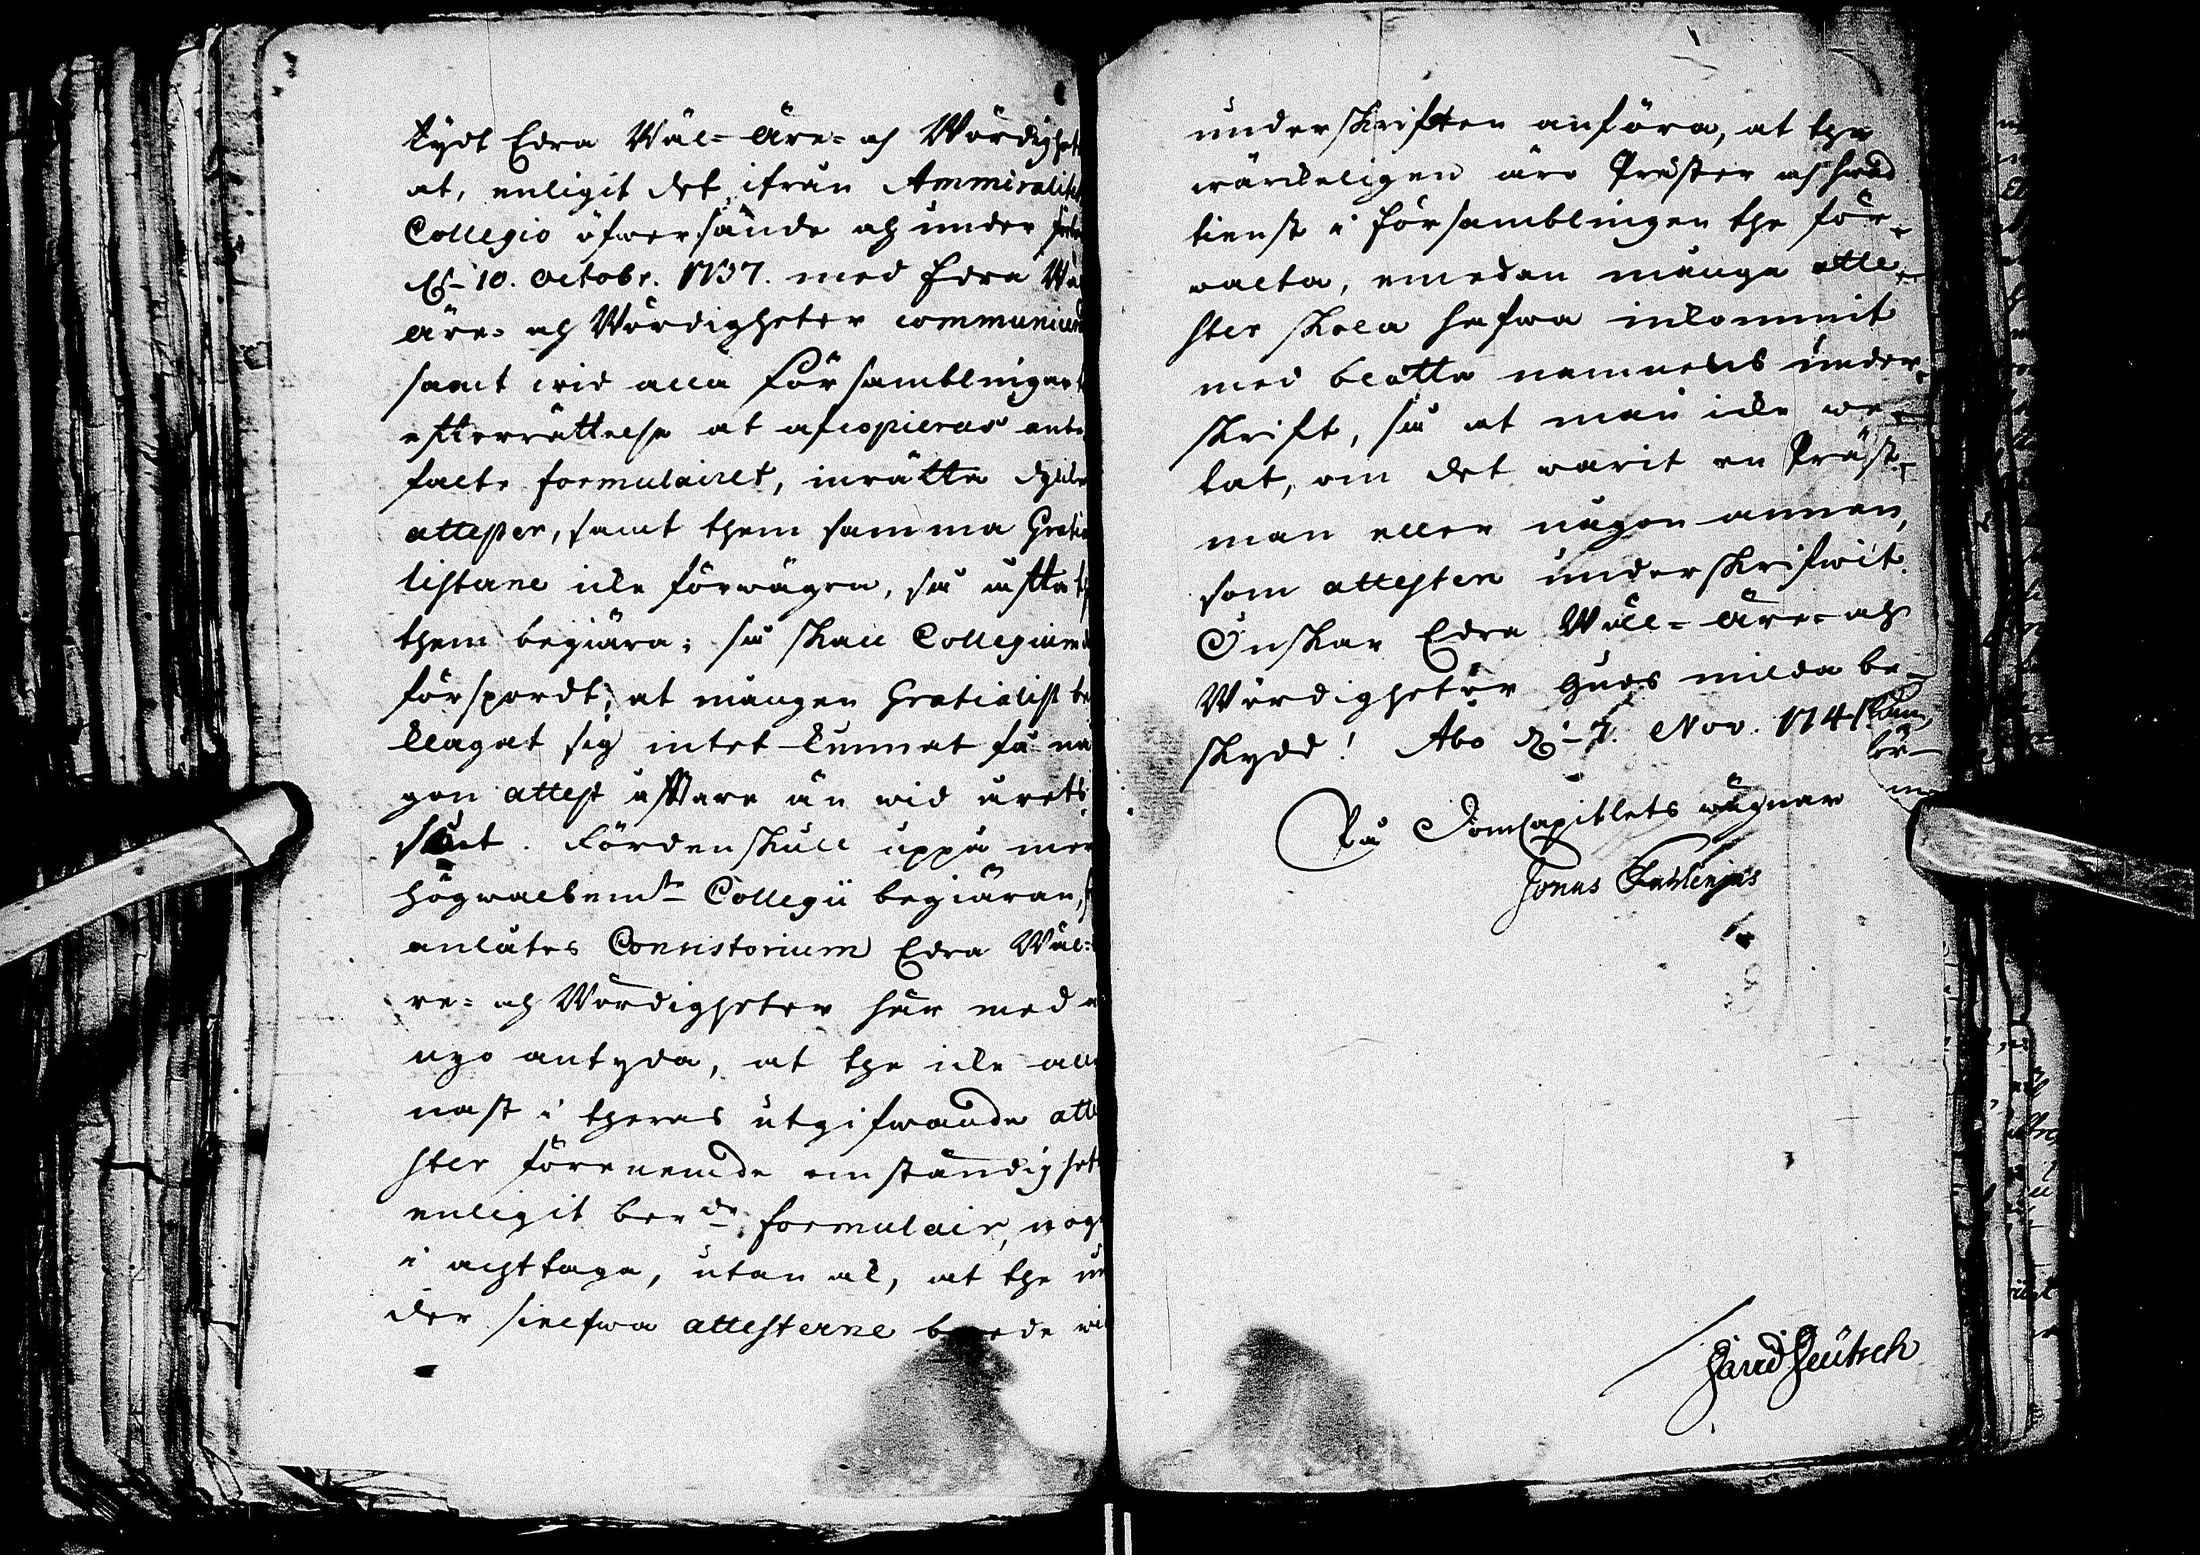 tydt Edra Wäl- Äre- och Wördighet
at, enligit det ifrån Ammiralitet
Collegio öfwersände och under
d. 10. Octobr. 1737. med Edra Wä
äre- och Wördigheter communice
samt wid alla Församblingar t
efterrättelse at afcopieras anbe
falte formulairet, inrätta dylike
attester, samt them samma Grati
listerne icke förwägra, så offta t
them begiära; så skall Collegium
förspordt, at mången Gratialist be
klagat sig intet kunnat få nå
gon attest offtare än wid årets
slut. Fördenskull uppå mer
högwalbem.te Collegii begiäran,
anlåter Consistorium Edra Wäl-
re- och Wördigheter här med
nyo antyda, at the icke alle
nast i theras utgifwande atte
ster förenemde omständighet
enligit ber.de formulair, noga
i achttaga, utan ok, at the un
der sielfwa attesterne brede wi
underskriften anföra, at the
wärckeligen äro Präster och hwad
tienst i Församblingen the för-
walta, emedan många atte-
ster skola hafwa inkommit
med blotta namnets under-
skrift, så at man icke we-
tat, om det warit en Präst-
man eller någon annan,
som attesten underskrifwit.
Önskar Edra Wäll- Äre- och
Wördigheter Guds milda be-
skydd! Åbo d. 7. Nov. 174
På DomCapitlets wägnar
Jonas Fahlenius
David Deutsch